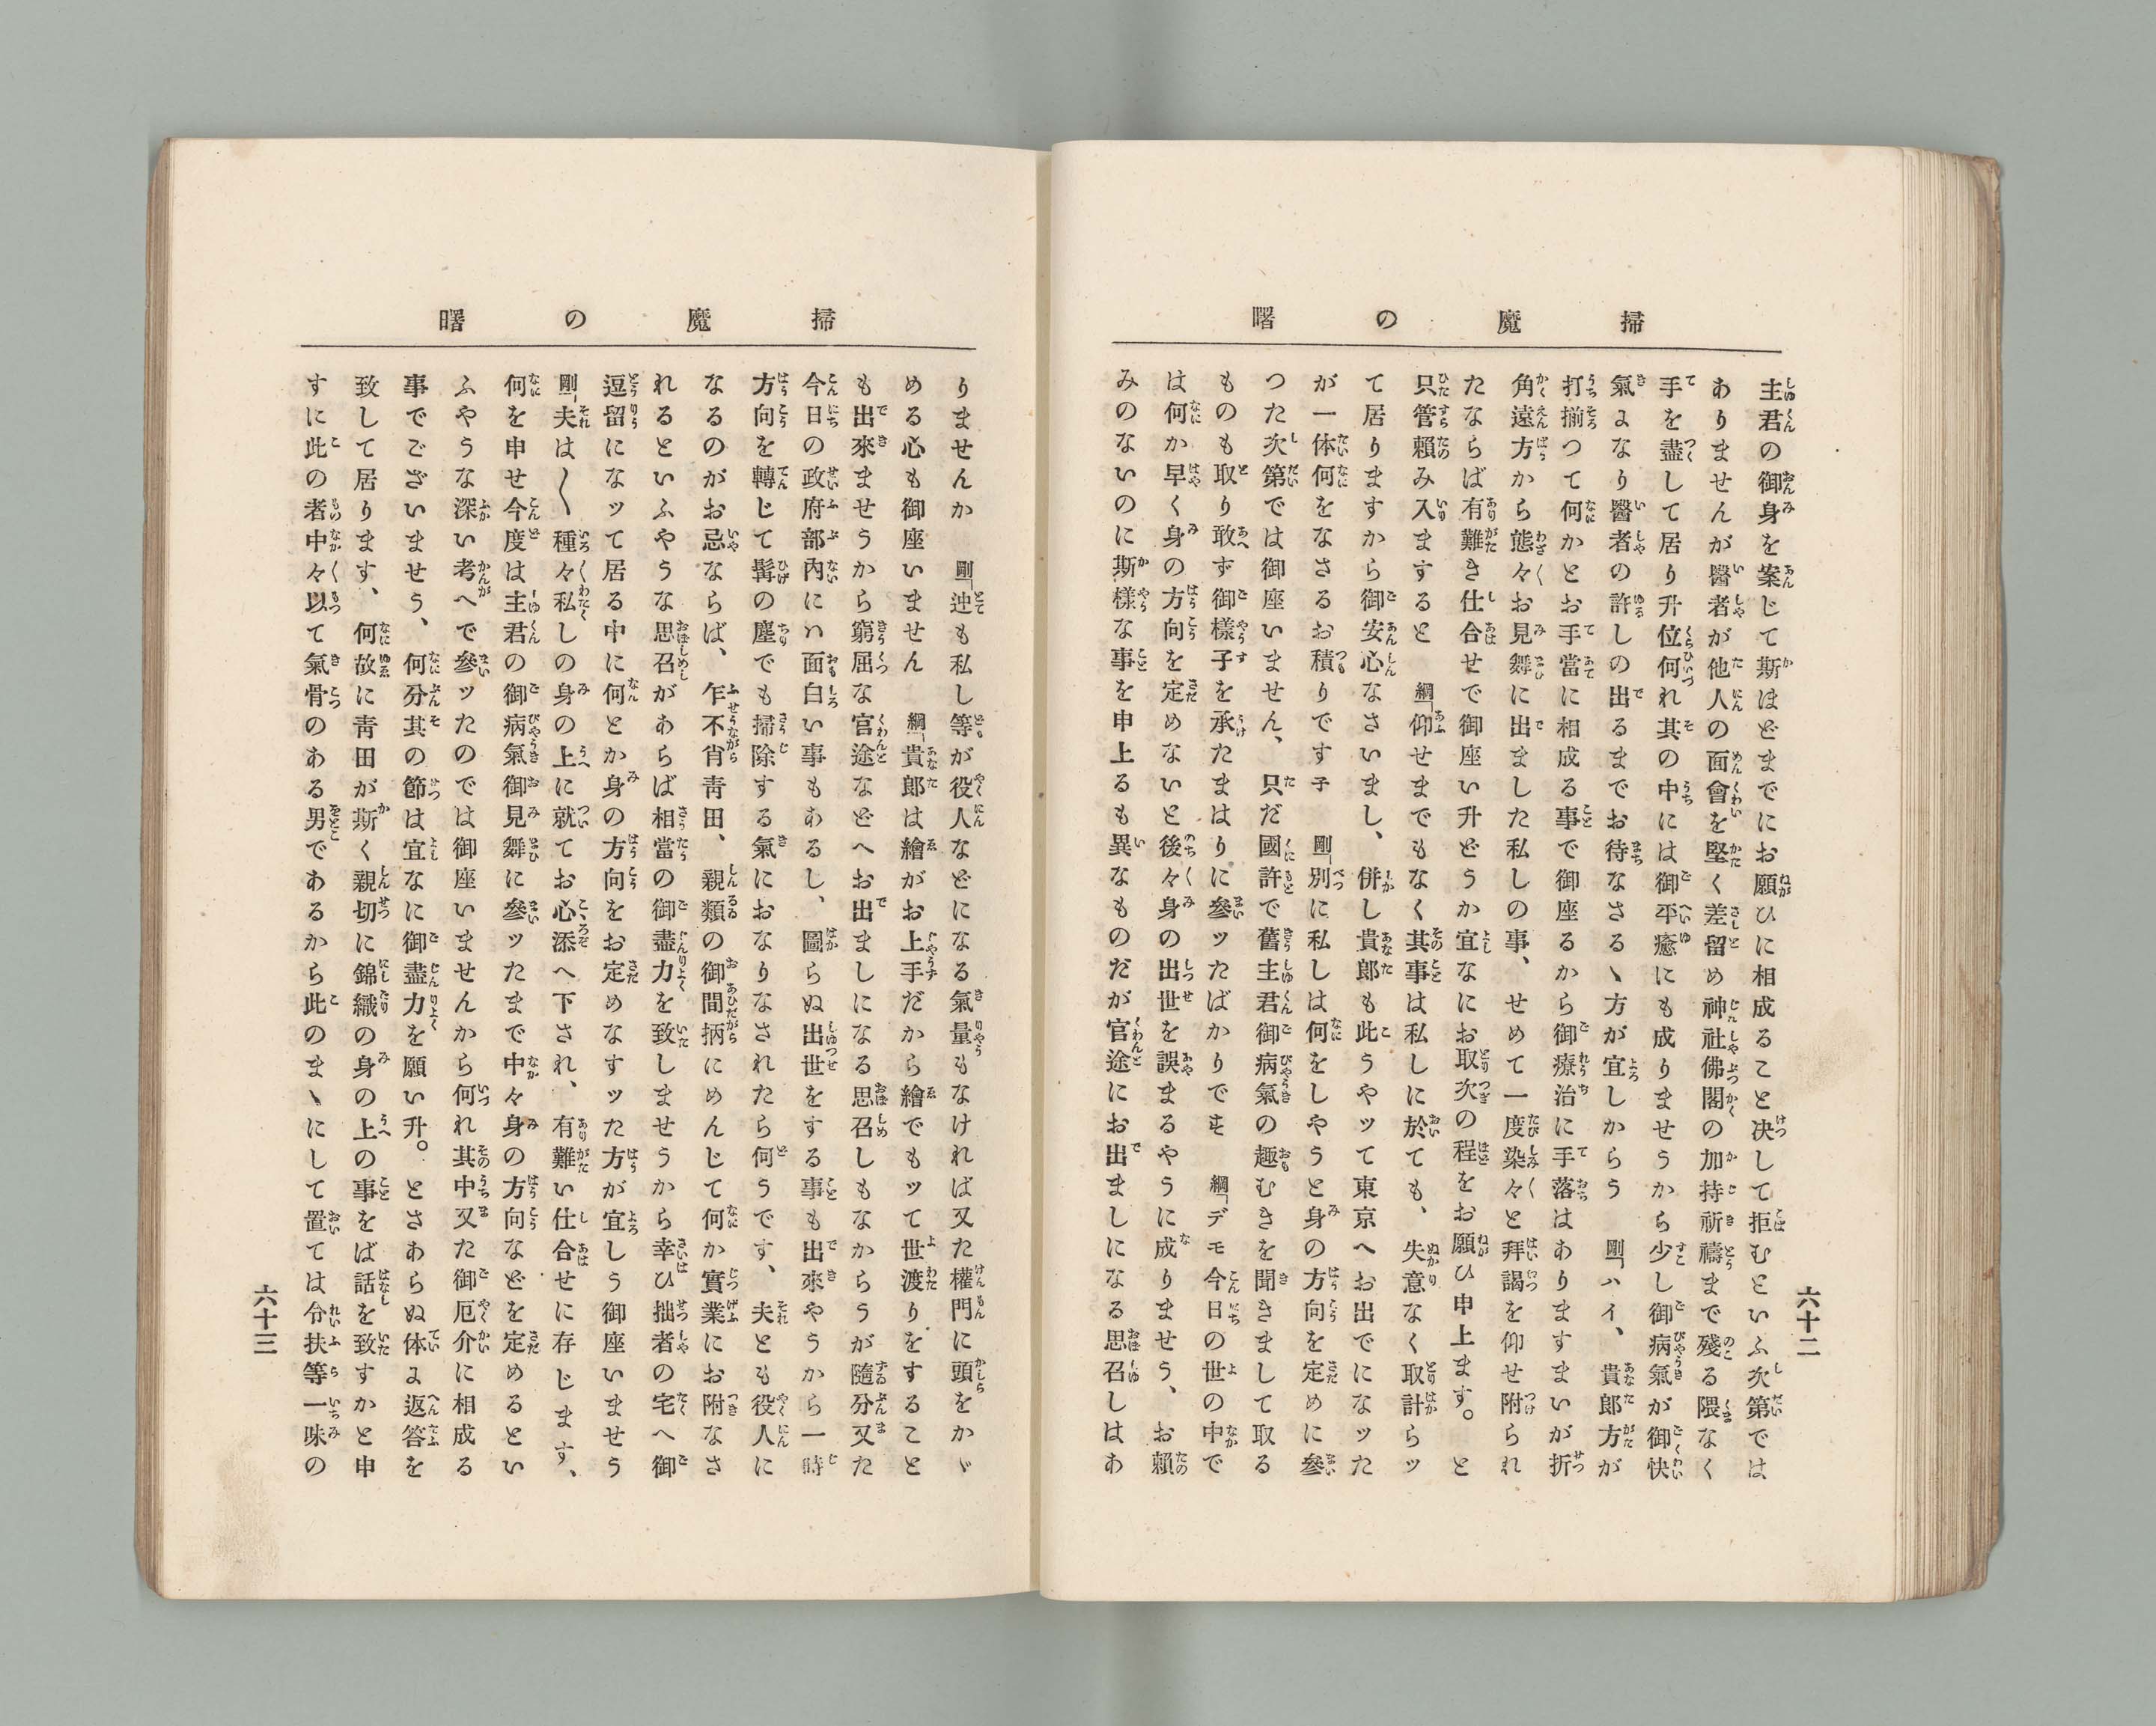 掃魔の曙
主君の御身を案じて斯はどまでにお願ひに相成ること決して拒むといふ次第では
ありませんが醫者が他人の面會を堅く差留め神社佛閣の加持祈禱まで殘る隈なく
手を盡して居り升位何れ其の中には御平癒にも成りませうから少し御病氣が御快
氣になり醫者の許しの出るまでお待なさるゝ方が宜しからう 剛「ハイ、貴郎方が
打揃つて何かとお手當に相成る事で御座るから御療治に手落はありますまいが折
角遠方から態々お見舞に出ました私しの事、せめて一度染々と拜謁を仰せ附られ
たならば有難き仕合せで御座い升どうか宜なにお取次の程をお願ひ申上ます。と
只管賴み入ますると 綱「仰せまでもなく其事は私しに於ても、失意なく取計らッ
て居りますから御安心なさいまし、併し貴郎も此うやッて東京へお出でになッた
が一体何をなさるお積りです子 剛「別に私しは何をしやうと身の方向を定めに參
つた次第では御座いません、只だ國許で舊主君御病氣の趣むきを聞きまして取る
ものも取り敢へず御樣子を承たまはりに參ッたばかりでㇵ 綱「デモ今日の世の中で
は何か早く身の方向を定めないと後々身の出世を誤まるやうに成りませう、お賴
みのないのに斯樣な事を申上るも異なものだが官途にお出ましになる思召しはあ
六十二
掃魔の曙
りませんか 剛「迚も私し等が役人などになる氣量もなければ又た權門に頭をかゞ
める心も御座いません 綱「貴郎は繪がお上手だから繪でもッて世渡りをすること
も出來ませうから窮屈な官途などへお出ましになる思召しもなからうが隨分又た
今日の政府部內にハ面白い事もあるし、圖らぬ出世をする事も出來やうから一時
方向を轉じて髯の塵でも掃除する氣におなりなされたら何うです、夫とも役人に
なるのがお忌ならば、乍不肖靑田、親類の御間柄にめんじて何か實業にお附なさ
れるといふやうな思召があらば相當の御盡力を致しませうから幸ひ拙者の宅へ御
逗留になッて居る中に何とか身の方向をお定めなすッた方が宜しう御座いませう
剛「夫は〱種々私しの身の上に就てお心添へ下され、有難い仕合せに存じます、
何を申せ今度は主君の御病氣御見舞に參ッたまで中々身の方向などを定めるとい
ふやうな深い考へで參ッたのでは御座いませんから何れ其中又た御厄介に相成る
事でございませう、何分其の節は宜なに御盡力を願い升。とさあらぬ体に返答を
致して居ります、何故に靑田が斯く親切に錦織の身の上の事をば話を致すかと申
すに此の者中々以て氣骨のある男であるから此のまゝにして置ては令扶等一味の
六十三